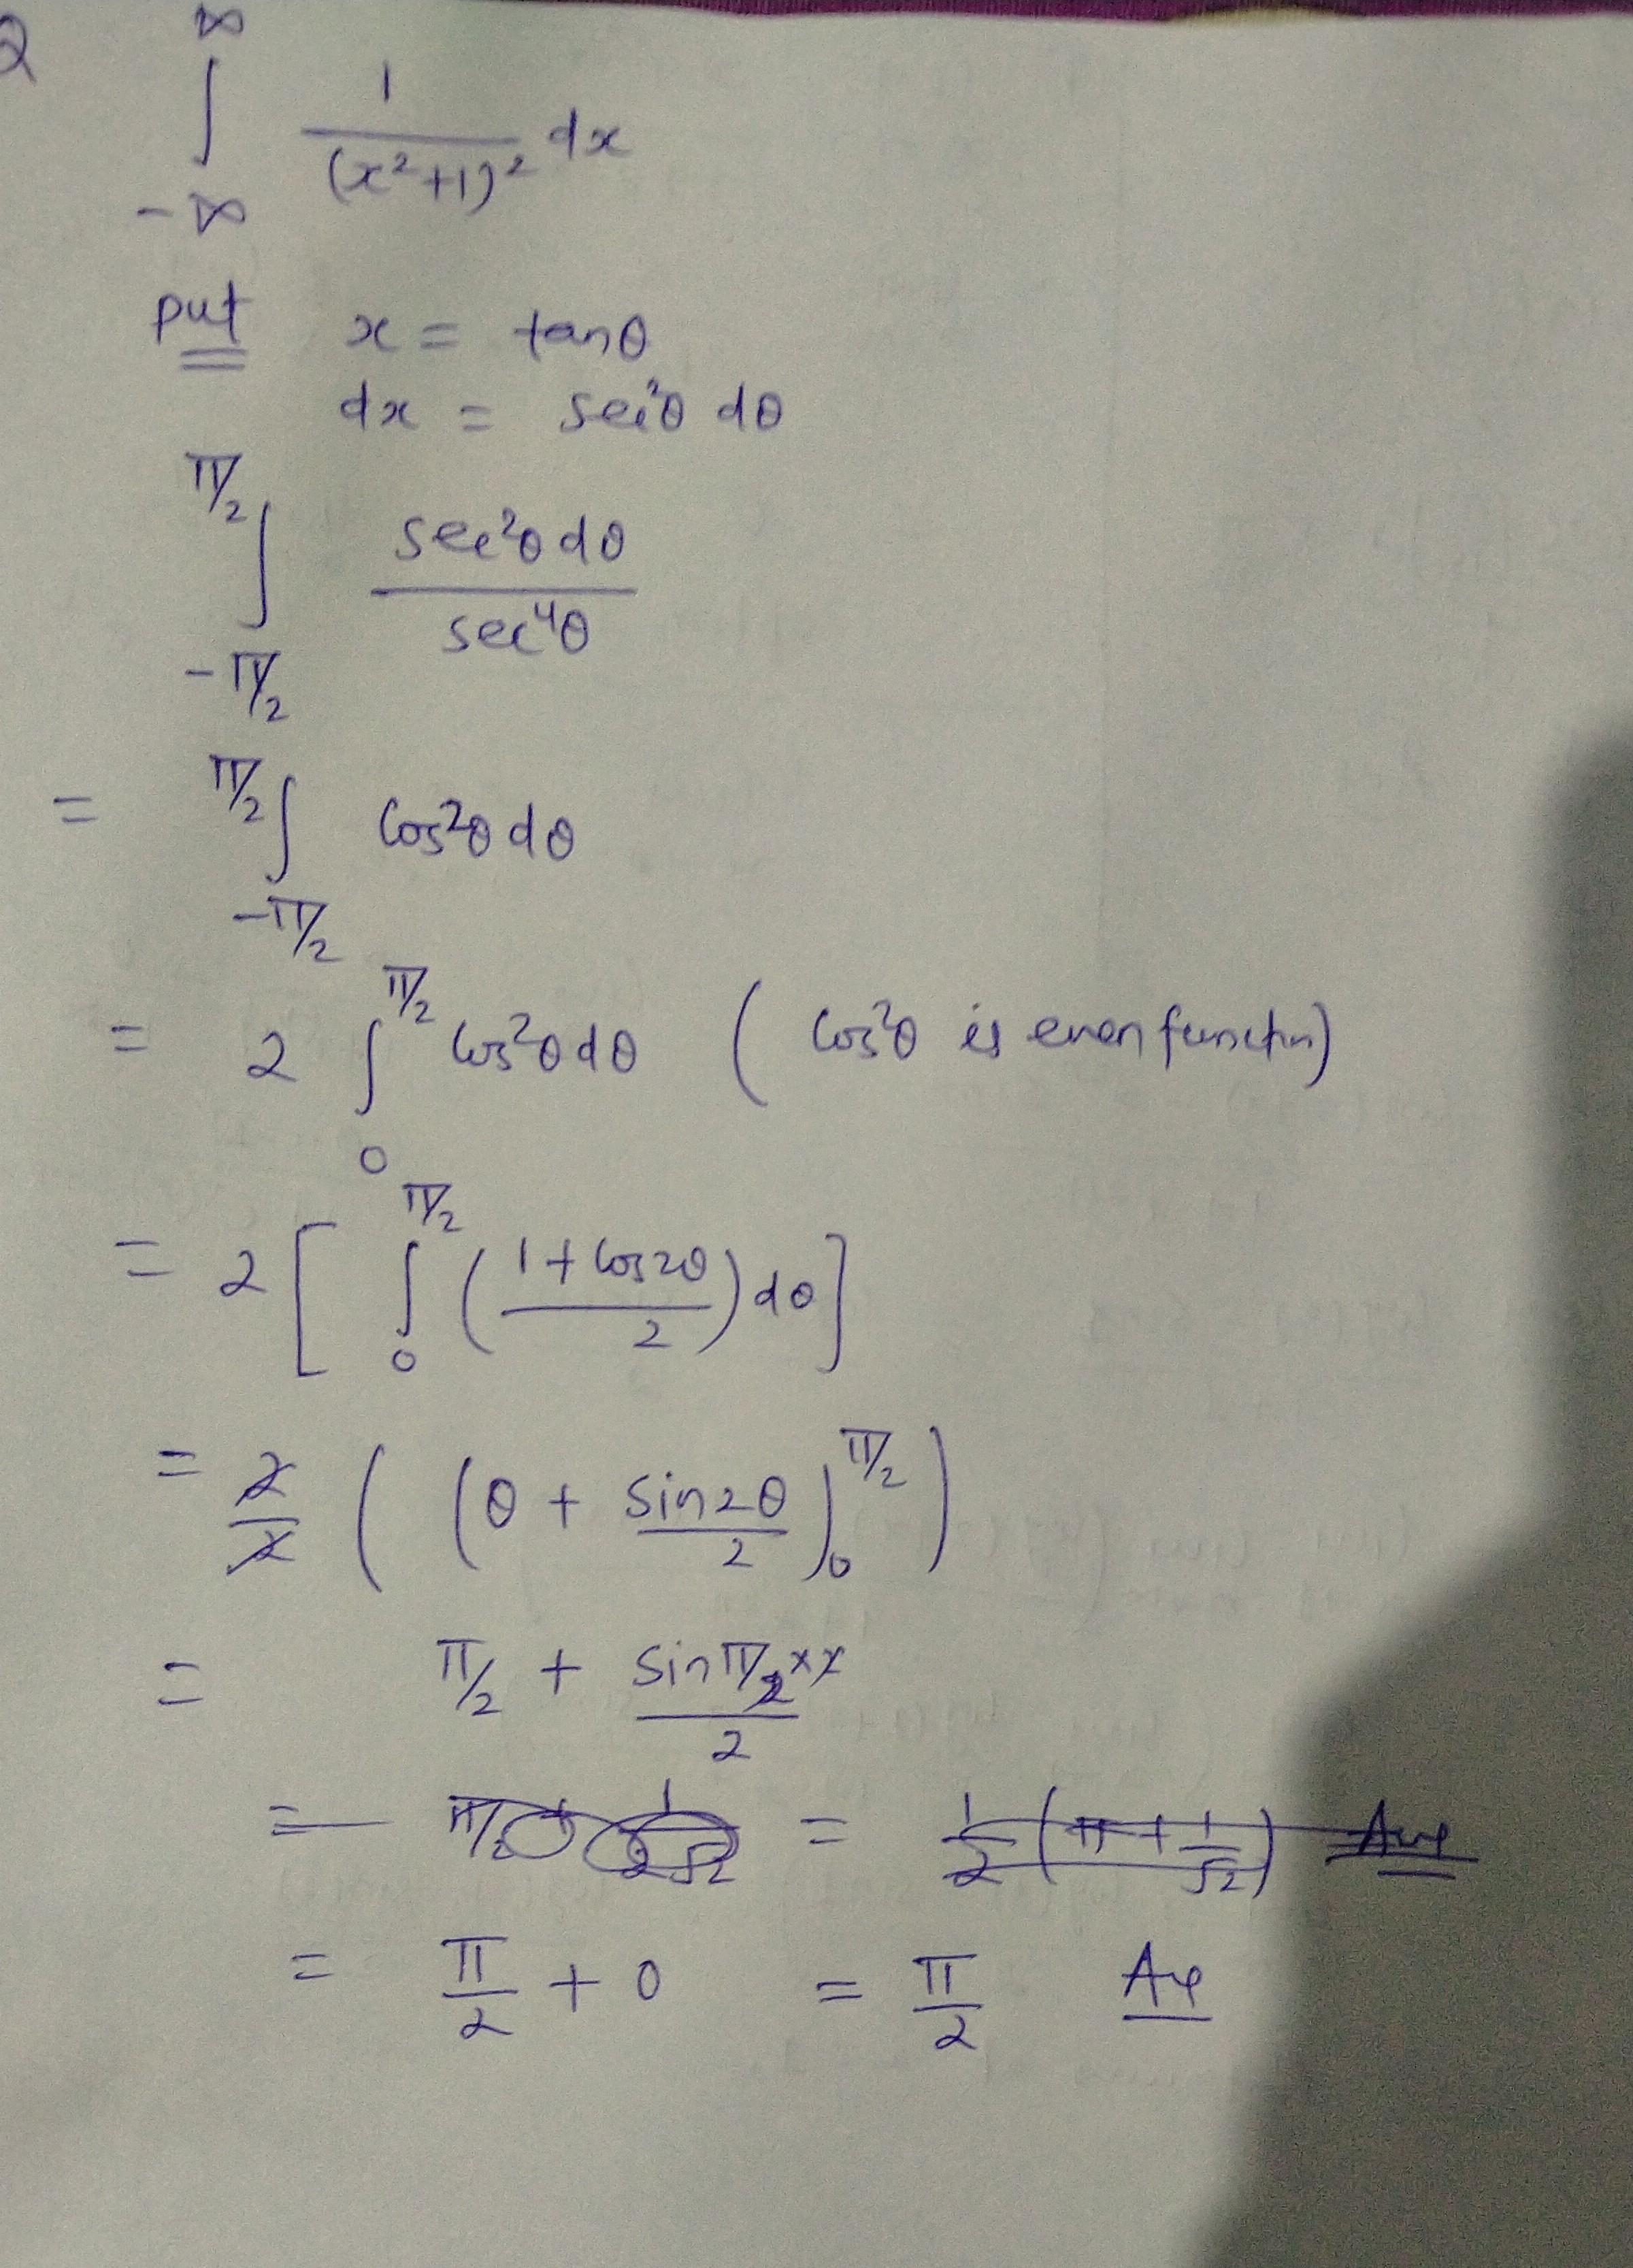 Q ∫_{-∞}^{∞} 1/(x²+1)² dx
put x = tanθ
dx = sec²θ dθ
∫_{-π/2}^{π/2} sec²θ dθ / sec⁴θ
= ∫_{-π/2}^{π/2} cos²θ dθ
= 2 ∫_{0}^{π/2} cos²θ dθ ( cos²θ is even function)
= 2 [ ∫_{0}^{π/2} ( (1 + cos2θ)/2 ) dθ ]
= 2/2 ( ( θ + sin2θ/2 )_{0}^{π/2} )
= π/2 + (sin π/2 × 2)/2
= π/2 + 1/(2√2) = 1/2 ( π + 1/√2 ) Ans
= π/2 + 0 = π/2 Ans